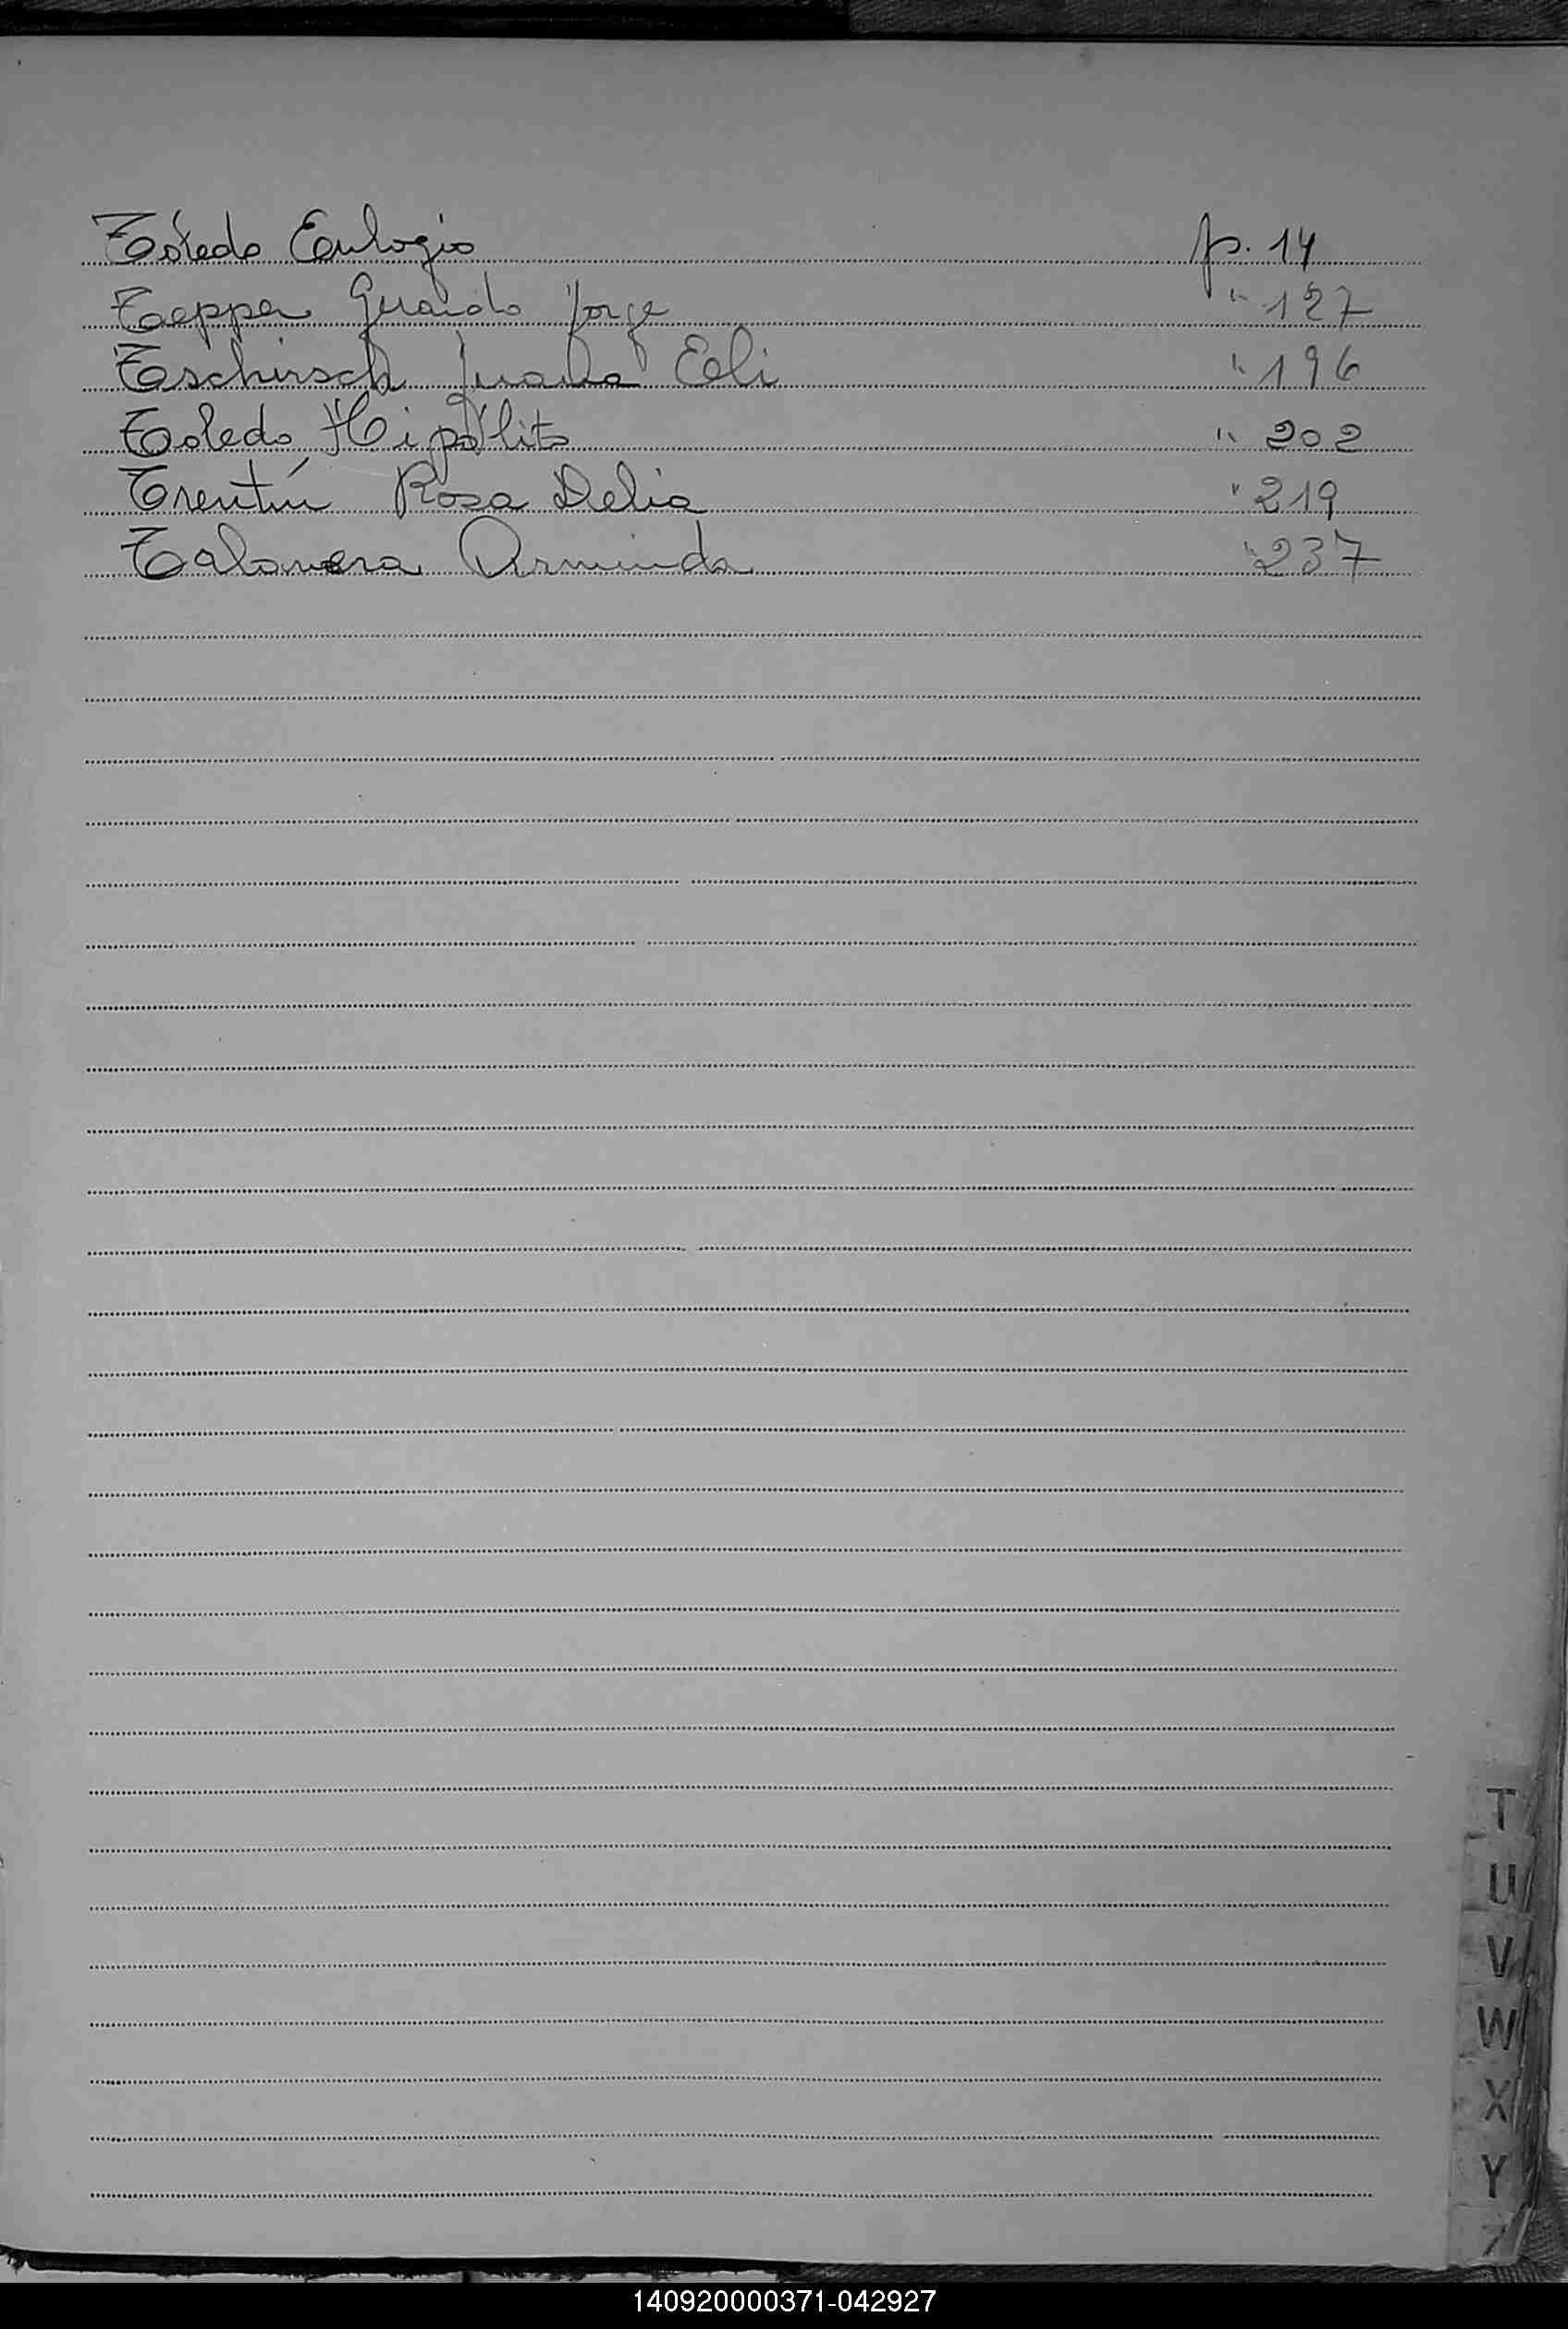 Toledo Eulogio p. 14
Taeppa Gerardo Jorge " 127
Tschirsch Juana Eli " 196
Toledo, Hipólito " 202
Trentín Rosa Delia " 219
Talavera Arminda " 237
T
U
V
W
X
Y
Z
140920000371-042927